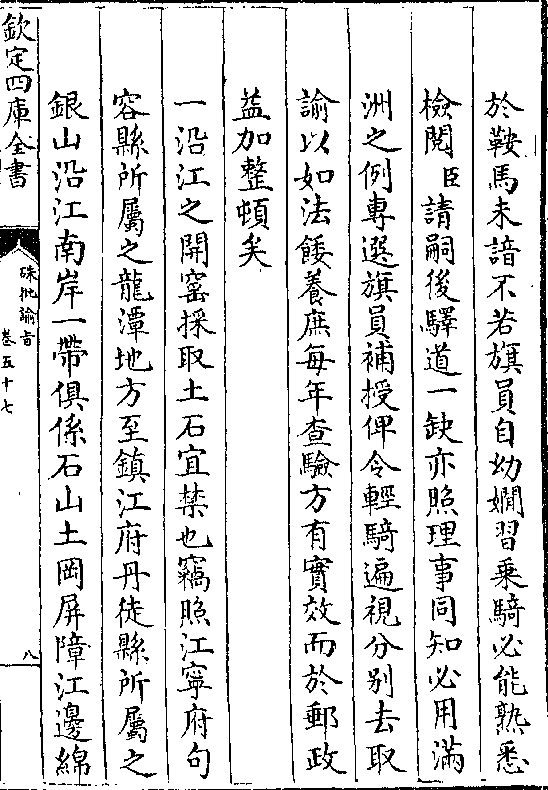 於鞍馬未諳不若旗員自幼嫺習乗騎必能熟悉
檢閲臣請嗣後驛道一缺亦照理事同知必用滿
洲之例專選旗員補授俾令輕騎遍視分别去取
諭以如法餧養庶每年查驗方有實效而於郵政
益加整頓矣
一沿江之開窰採取土石宜禁也竊照江寧府句
容縣所屬之龍潭地方至鎮江府丹徒縣所屬之
銀山沿江南岸一帶俱係石山土岡屏障江邊綿
欽定四庫全書
硃批諭旨
卷五十七
八